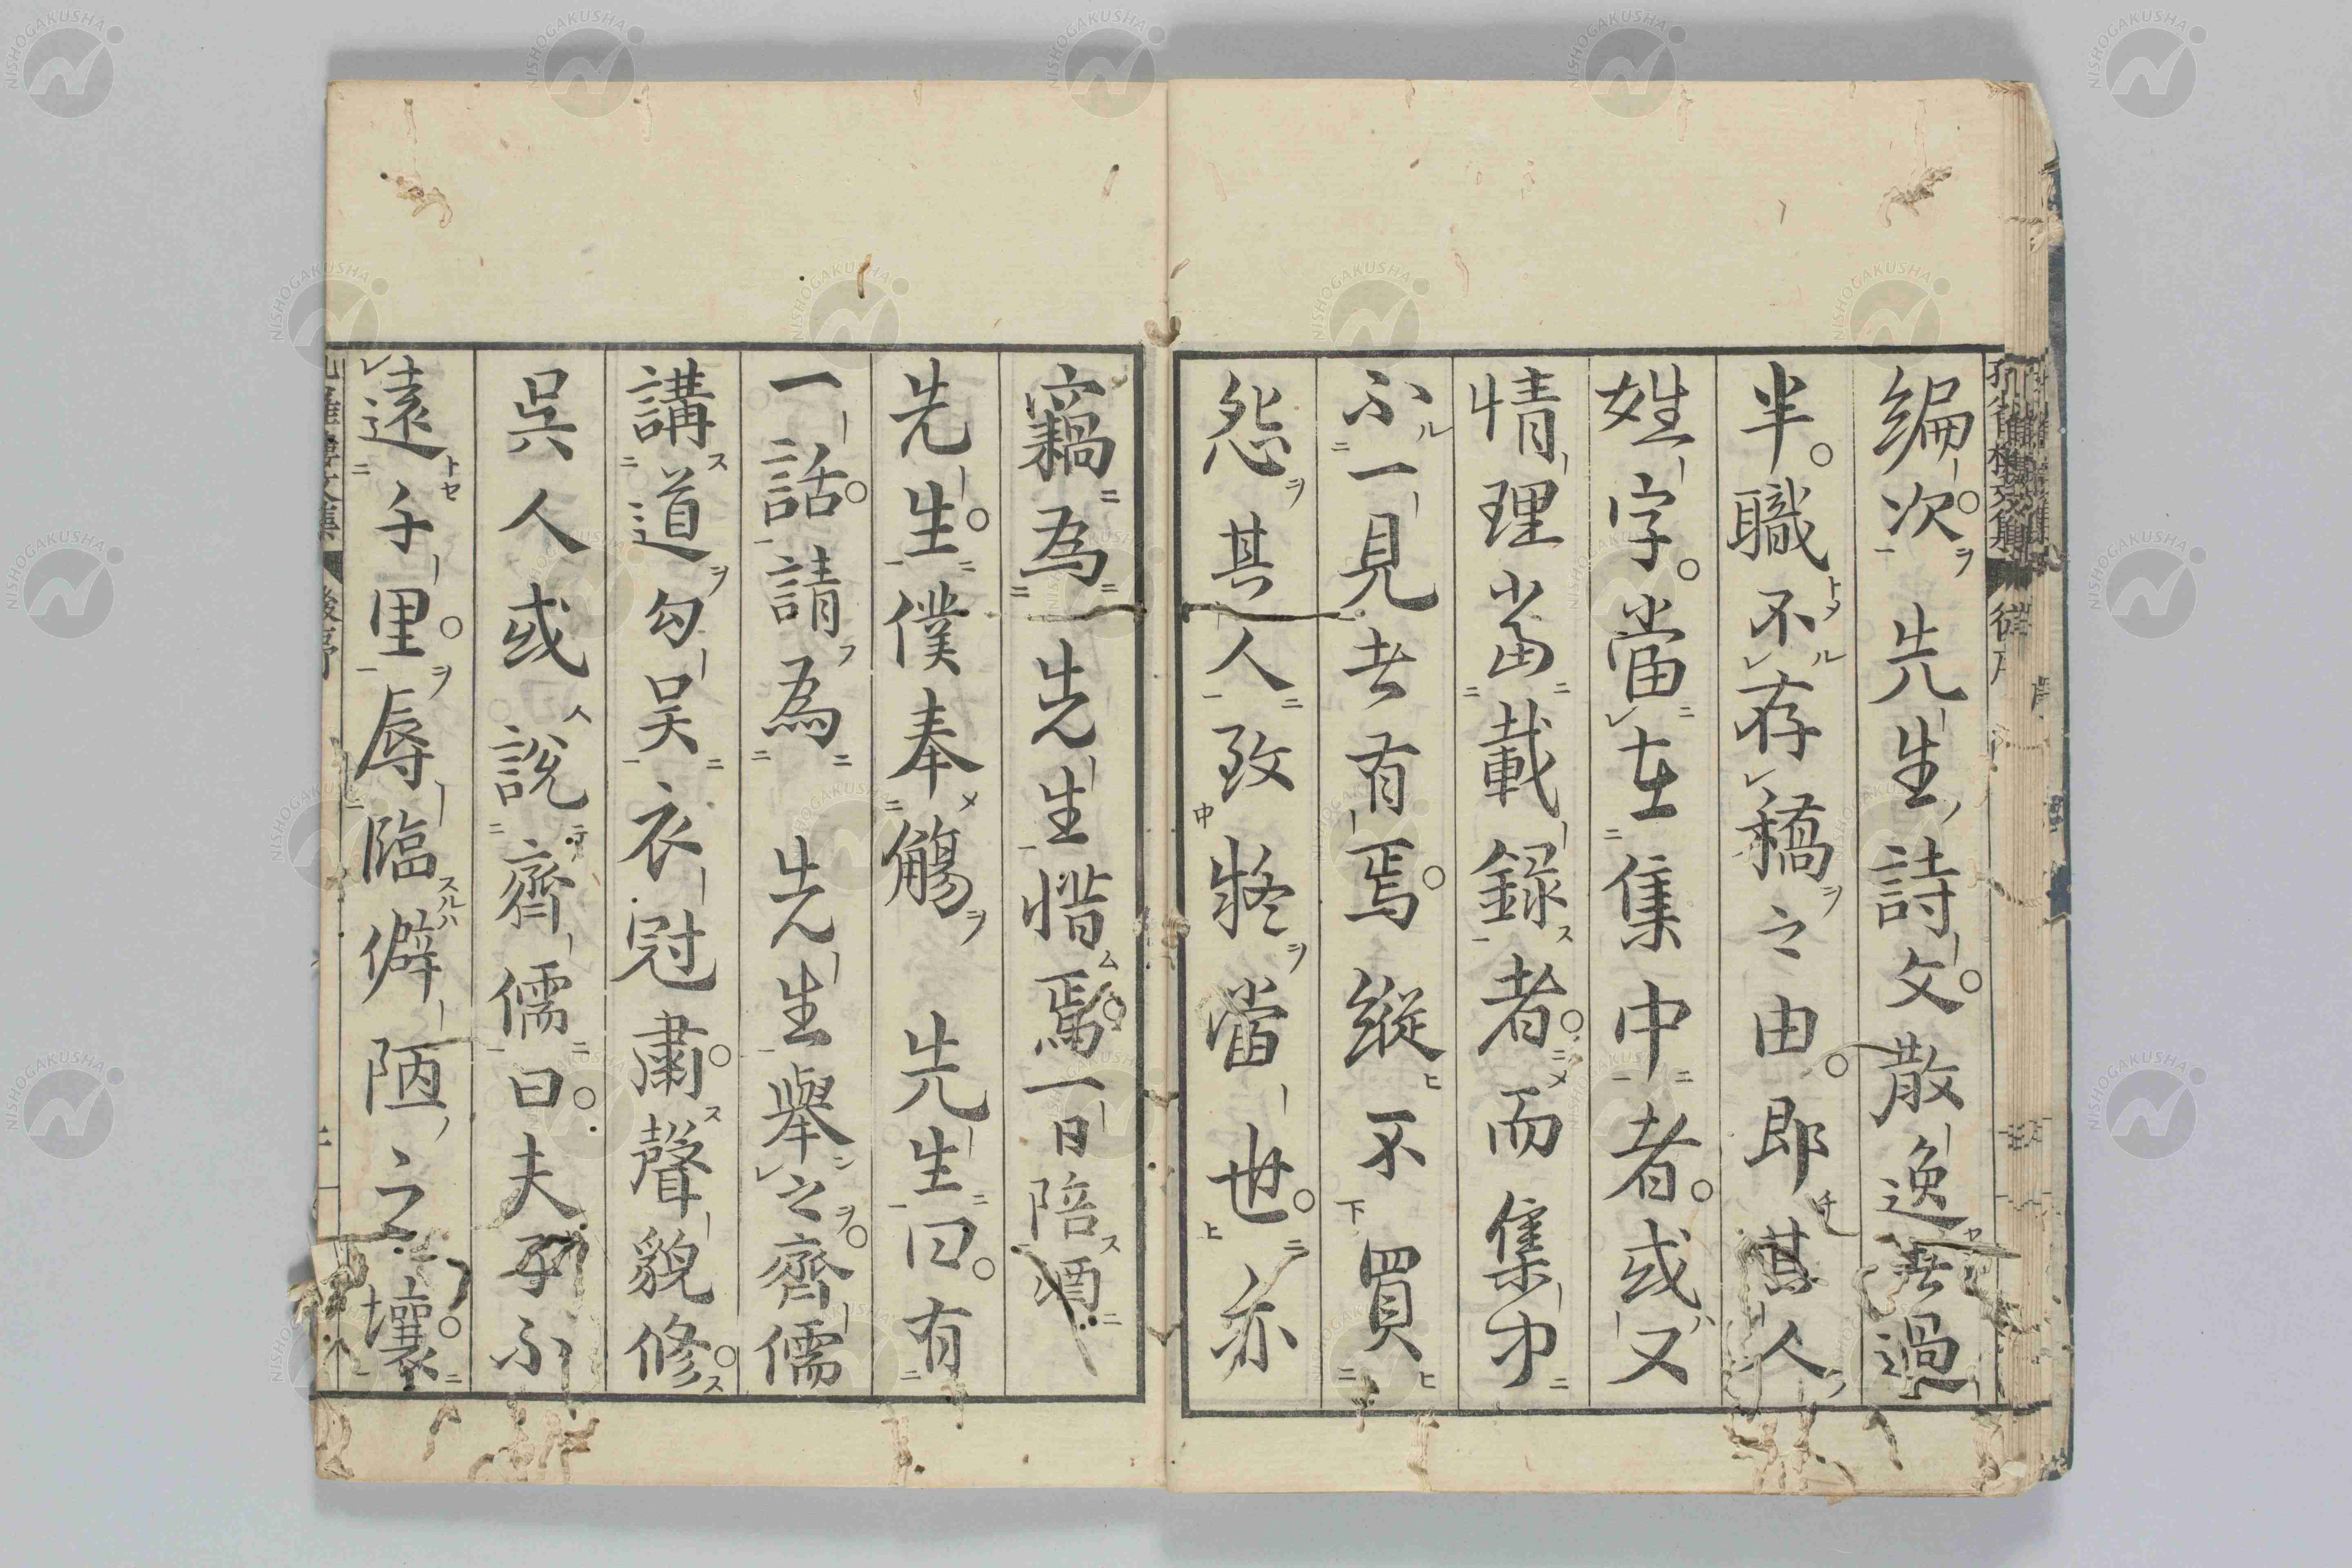 編次先生詩文散逸無過
半職不存稿之由即其人
姓字當在集中者或又
情理當載錄者而集中
不一見者有焉縱不買
怨其人致將當世亦
竊為先生惜焉一日陪酒
先生僕奉觴先生曰有
一話請為先生舉之齊儒
講道勾吳衣冠肅聲貌修
吳人或說齊儒曰夫子不
遠千里辱臨僻陋之壤
NISHOGAKUSHA